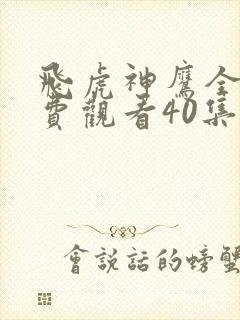 飛虎神鷹全
費觀看40集
會說話的螃蟹